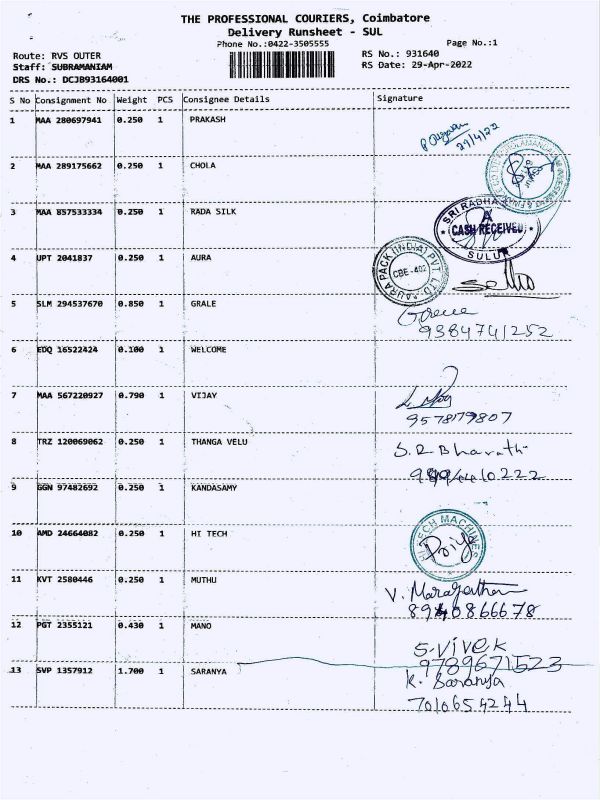 THE PROFESSIONAL COURIERS, Coimbatore
Delivery Runsheet - SUL
Phone No.:0422-3505555
Page No.:1
Route: RVS OUTER
RS No.: 931640
Staff: SUBRAMANIAM
RS Date: 29-Apr-2022
DRS No.: DCJB93164001
S No Consignment No Weight PCS Consignee Details Signature
1 MAA 280697941 0.250 1 PRAKASH
29/4/22
2 MAA 289175662 0.250 1 CHOLA
3 MAA 857533334 0.250 1 RADA SILK
SRI RADHA
CASH RECEIVED
SULUR
4 UPT 2041837 0.250 1 AURA
AURA PACK (INDIA) PVT. LTD.
CBE-402
5 SLM 294537670 0.850 1 GRALE
9384741252
6 EDQ 16522424 0.100 1 WELCOME
7 MAA 567220927 0.790 1 VIJAY
9578179807
8 TRZ 120069062 0.250 1 THANGA VELU
S.R Bharath
9 GGN 97482692 0.250 1 KANDASAMY
10 AMD 24664082 0.250 1 HI TECH
HI-TECH MACHINES
Priya
11 KVT 2580446 0.250 1 MUTHU
8940866678
12 PGT 2355121 0.430 1 MANO
S-Vivek
9789671523
13 SVP 1357912 1.700 1 SARANYA
K. Saranya
7010654244